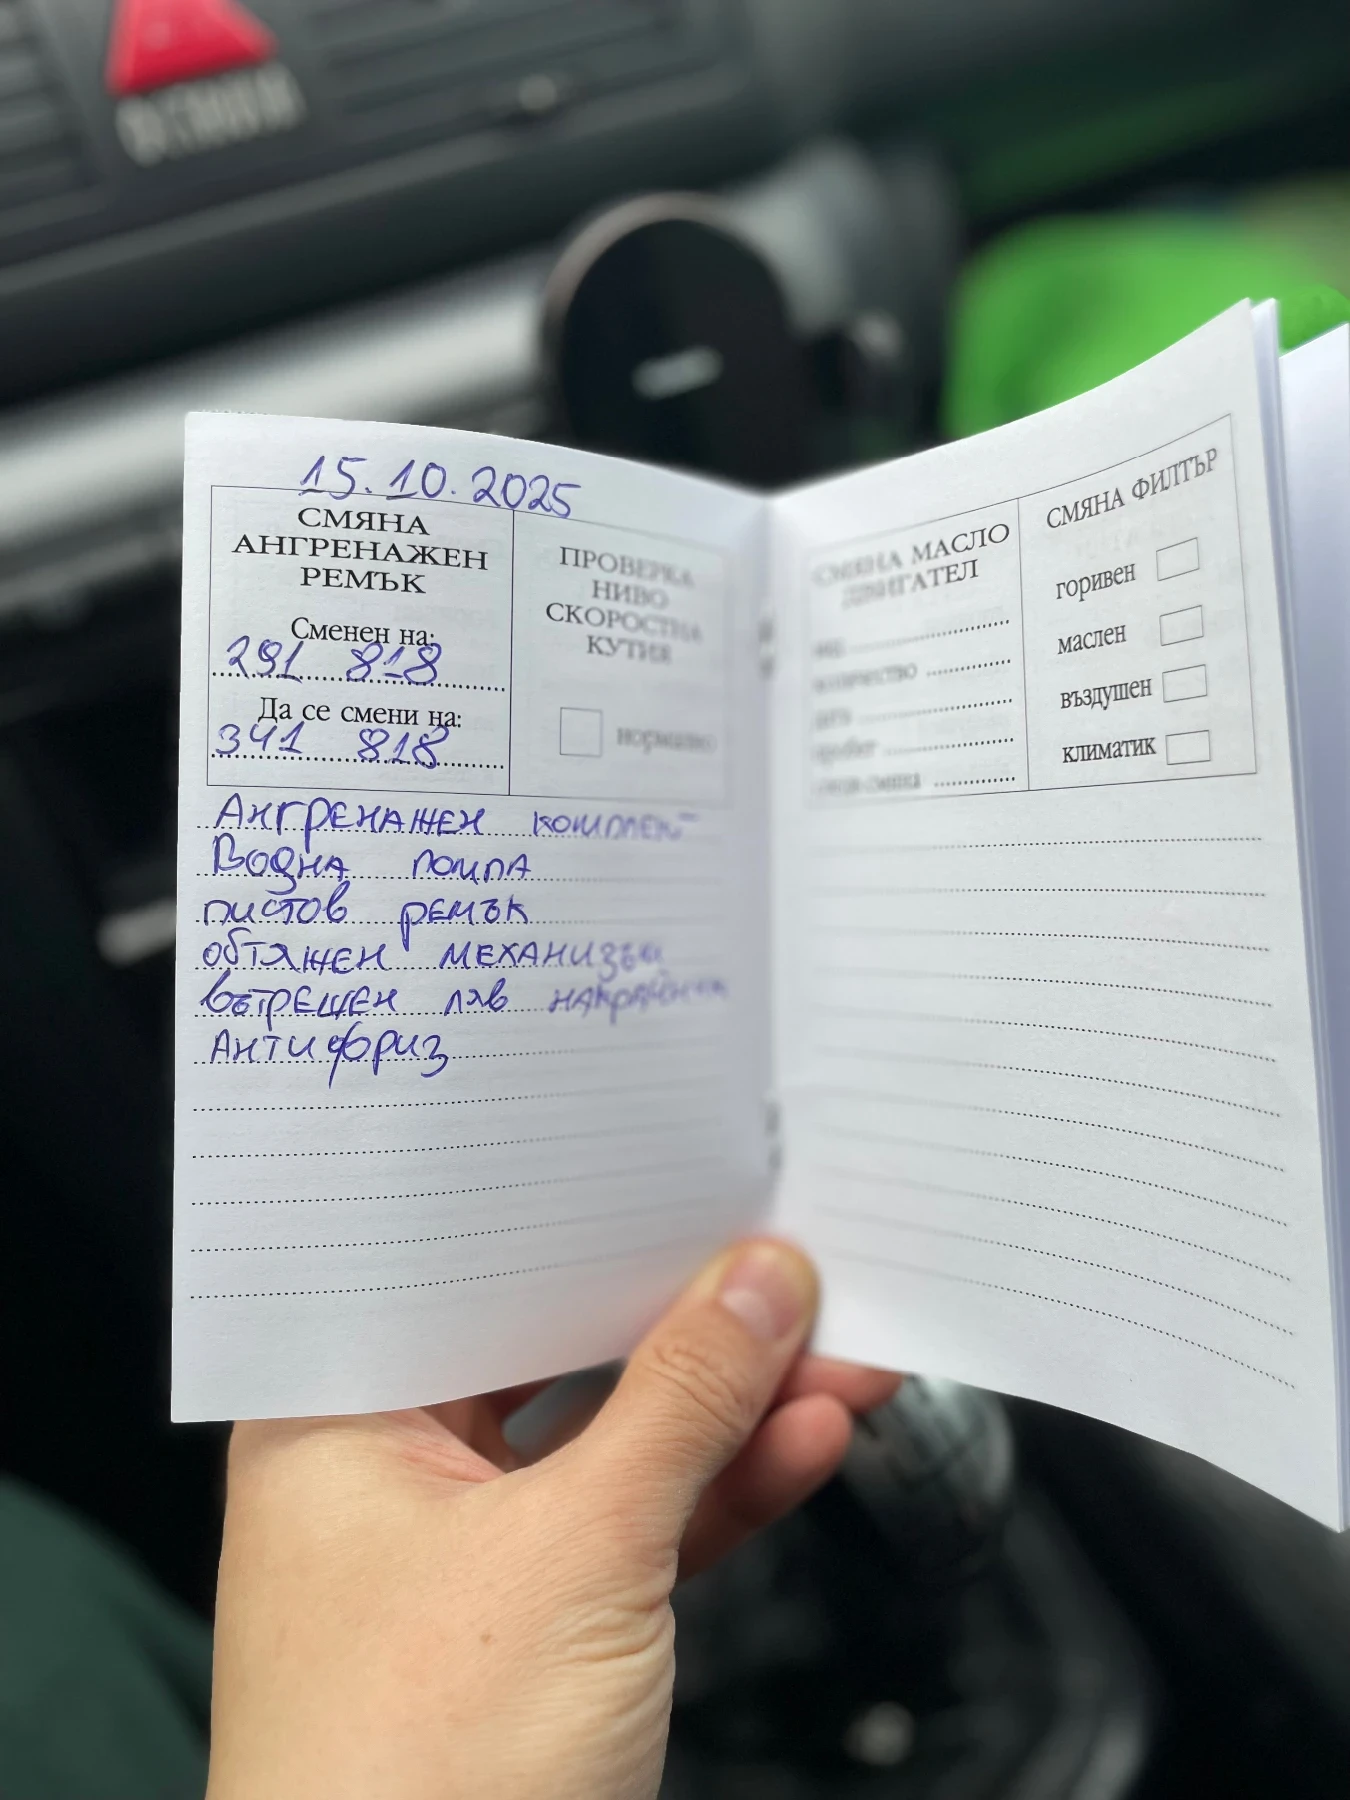 15.10.2025
СМЯНА
АНГРЕНАЖЕН
РЕМЪК
Сменен на:
291 818
Да се смени на:
341 818
ПРОВЕРКА
НИВО
СКОРОСТНА
КУТИЯ
нормално
Ангренажен комплект
Водна помпа
пистов ремък
обтяжен механизъм
вътрешен ляв накрайник
Антифриз
СМЯНА МАСЛО
ДВИГАТЕЛ
вид
количество
дата
пробег
СМЯНА ФИЛТЪР
горивен
маслен
въздушен
климатик